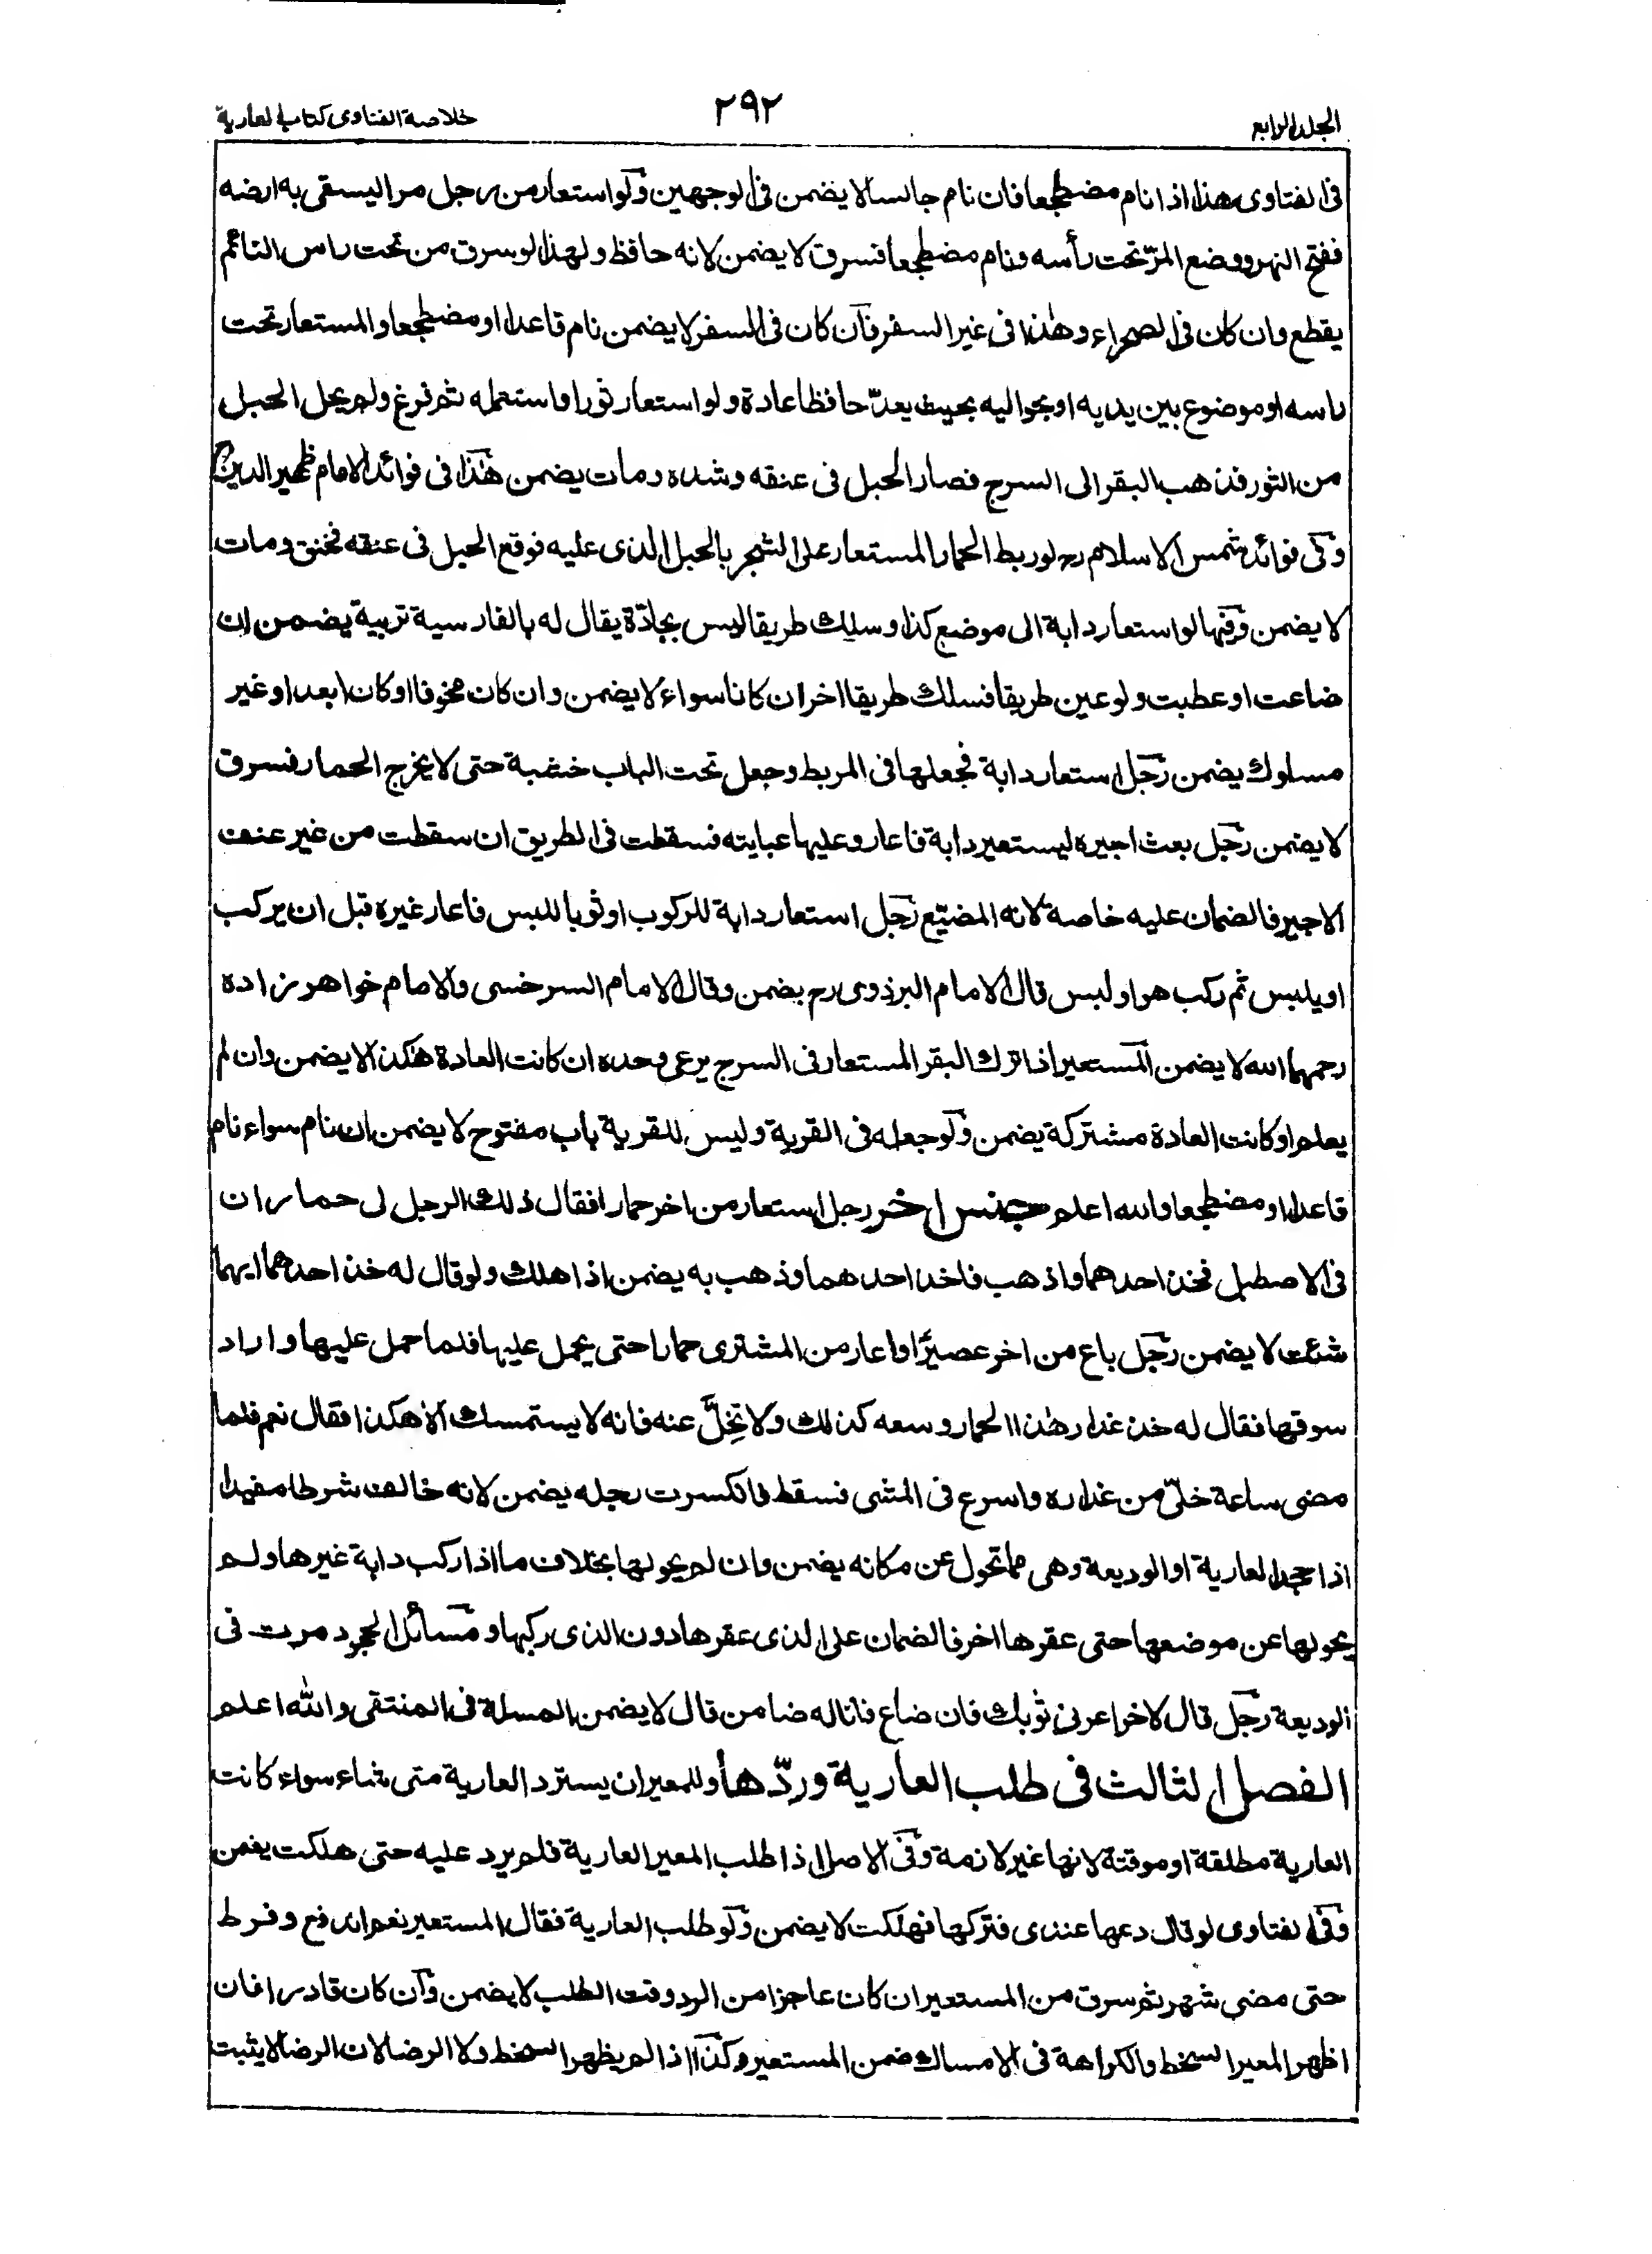 المجلد الرابع
٢٩٢
خلاصة الفتاوى كتاب العارية
فى الفتاوى هذا اذا نام مضطجعا فان نام جالسا لا يضمن فى الوجهين ولو استعار من رجل مرا ليسقى به ارضه
ففتح النهر ووضع المرّ تحت رأسه ونام مضطجعا فسرق لا يضمن لانه حافظ ولهذا لو سرق من تحت راس النائم
يقطع وان كان فى الصحراء وهٰذا فى غير السفر فان كان فى السفر لا يضمن نام قاعدا او مضطجعا والمستعار تحت
راسه او موضوع بين يديه او بحواليه بحيث يعدّ حافظا عادة ولو استعار ثورا واستعمله ثم فرغ ولم يحل الحبل
من الثور فذهب البقر الى السرح فصار الحبل فى عنقه وشده ومات يضمن هٰذا فى فوائد الامام ظهير الدين رح
وفى فوائد شمس الاسلام رح لو ربط الحمار المستعار على الشجر بالحبل الذى عليه فوقع الحبل فى عنقه فخنق ومات
لا يضمن وفيها لو استعار دابة الى موضع كذا وسلك طريقا ليس بجادّة يقال له بالفارسية تربية يضمن ان
ضاعت او عطبت ولو عين طريقا فسلك طريقا اخر ان كانا سواء لا يضمن وان كان مخوفا او كان ابعد او غير
مسلوك يضمن رجل استعار دابة فجعلها فى المربط وجعل تحت الباب خشبة حتى لا يخرج الحمار فسرق
لا يضمن رجل بعث اجيره ليستعير دابة فاعار وعليها عبايته فسقطت فى الطريق ان سقطت من غير عنف
الاجير فالضمان عليه خاصة لانه المضيّع رجل استعار دابة للركوب او ثوبا للبس فاعار غيره قبل ان يركب
او يلبس ثم ركب هو او لبس قال الامام البزذوى رح يضمن وقال الامام السرخسى والامام خواهر زاده
رحمهما الله لا يضمن المستعير اذا ترك البقر المستعار فى السرح يرعى وحده ان كانت العادة هٰكذا لا يضمن وان لم
يعلم او كانت العادة مشتركة يضمن ولو جعله فى القرية وليس للقرية باب مفتوح لا يضمن ان نام سواء نام
قاعدا او مضطجعا والله اعلم جنس اخر رجل استعار من اخر حمارا فقال ذلك الرجل لى حماران
فى الاصطبل فخذ احدهما واذهب فاخذ احدهما وذهب به يضمن اذا هلك ولو قال له خذ احدهما ايهما
شئت لا يضمن رجل باع من اخر عصيرًا واعار من المشترى حمارا حتى يحمل عليها فلما حمل عليها واراد
سوقها فقال له خذ غدار هٰذا الحمار وسعه كذلك ولا تخلّ عنه فانه لا يستمسك الا هكذا فقال نعم فلما
مضى ساعة خلّى من غداره واسرع فى المشى فسقط فانكسرت رجله يضمن لانه خالف شرطا مفيدا
اذا جحد العارية او الوديعة وهى مما تحول عن مكانه يضمن وان لم يحولها بخلاف ما اذا ركب دابة غيرها ولم
يحولها عن موضعها حتى عقرها اخر فالضمان على الذى عقرها دون الذى ركبها ومسائل الجحود مرت فى
الوديعة رجل قال لاخر اعرنى ثوبك فان ضاع فانا له ضامن قال لا يضمن المسئلة فى المنتقى والله اعلم
الفصل الثالث فى طلب العارية وردّها وللمعير ان يسترد العارية متى شاء سواء كانت
العارية مطلقة او موقتة لانها غير لازمة وفى الاصل اذا طلب المعير العارية فلم يرد عليه حتى هلكت يضمن
وفى الفتاوى لو قال دعها عندى فتركها فهلكت لا يضمن ولو طلب العارية فقال المستعير نعم ادفع وفرط
حتى مضى شهر ثم سرق من المستعير ان كان عاجزا من الرد وقت الطلب لا يضمن وان كان قادرا فان
اظهر المعير السخط والكراهة فى الامساك ضمن المستعير وكذا اذا لم يظهر السخط ولا الرضا لان الرضا لا يثبت